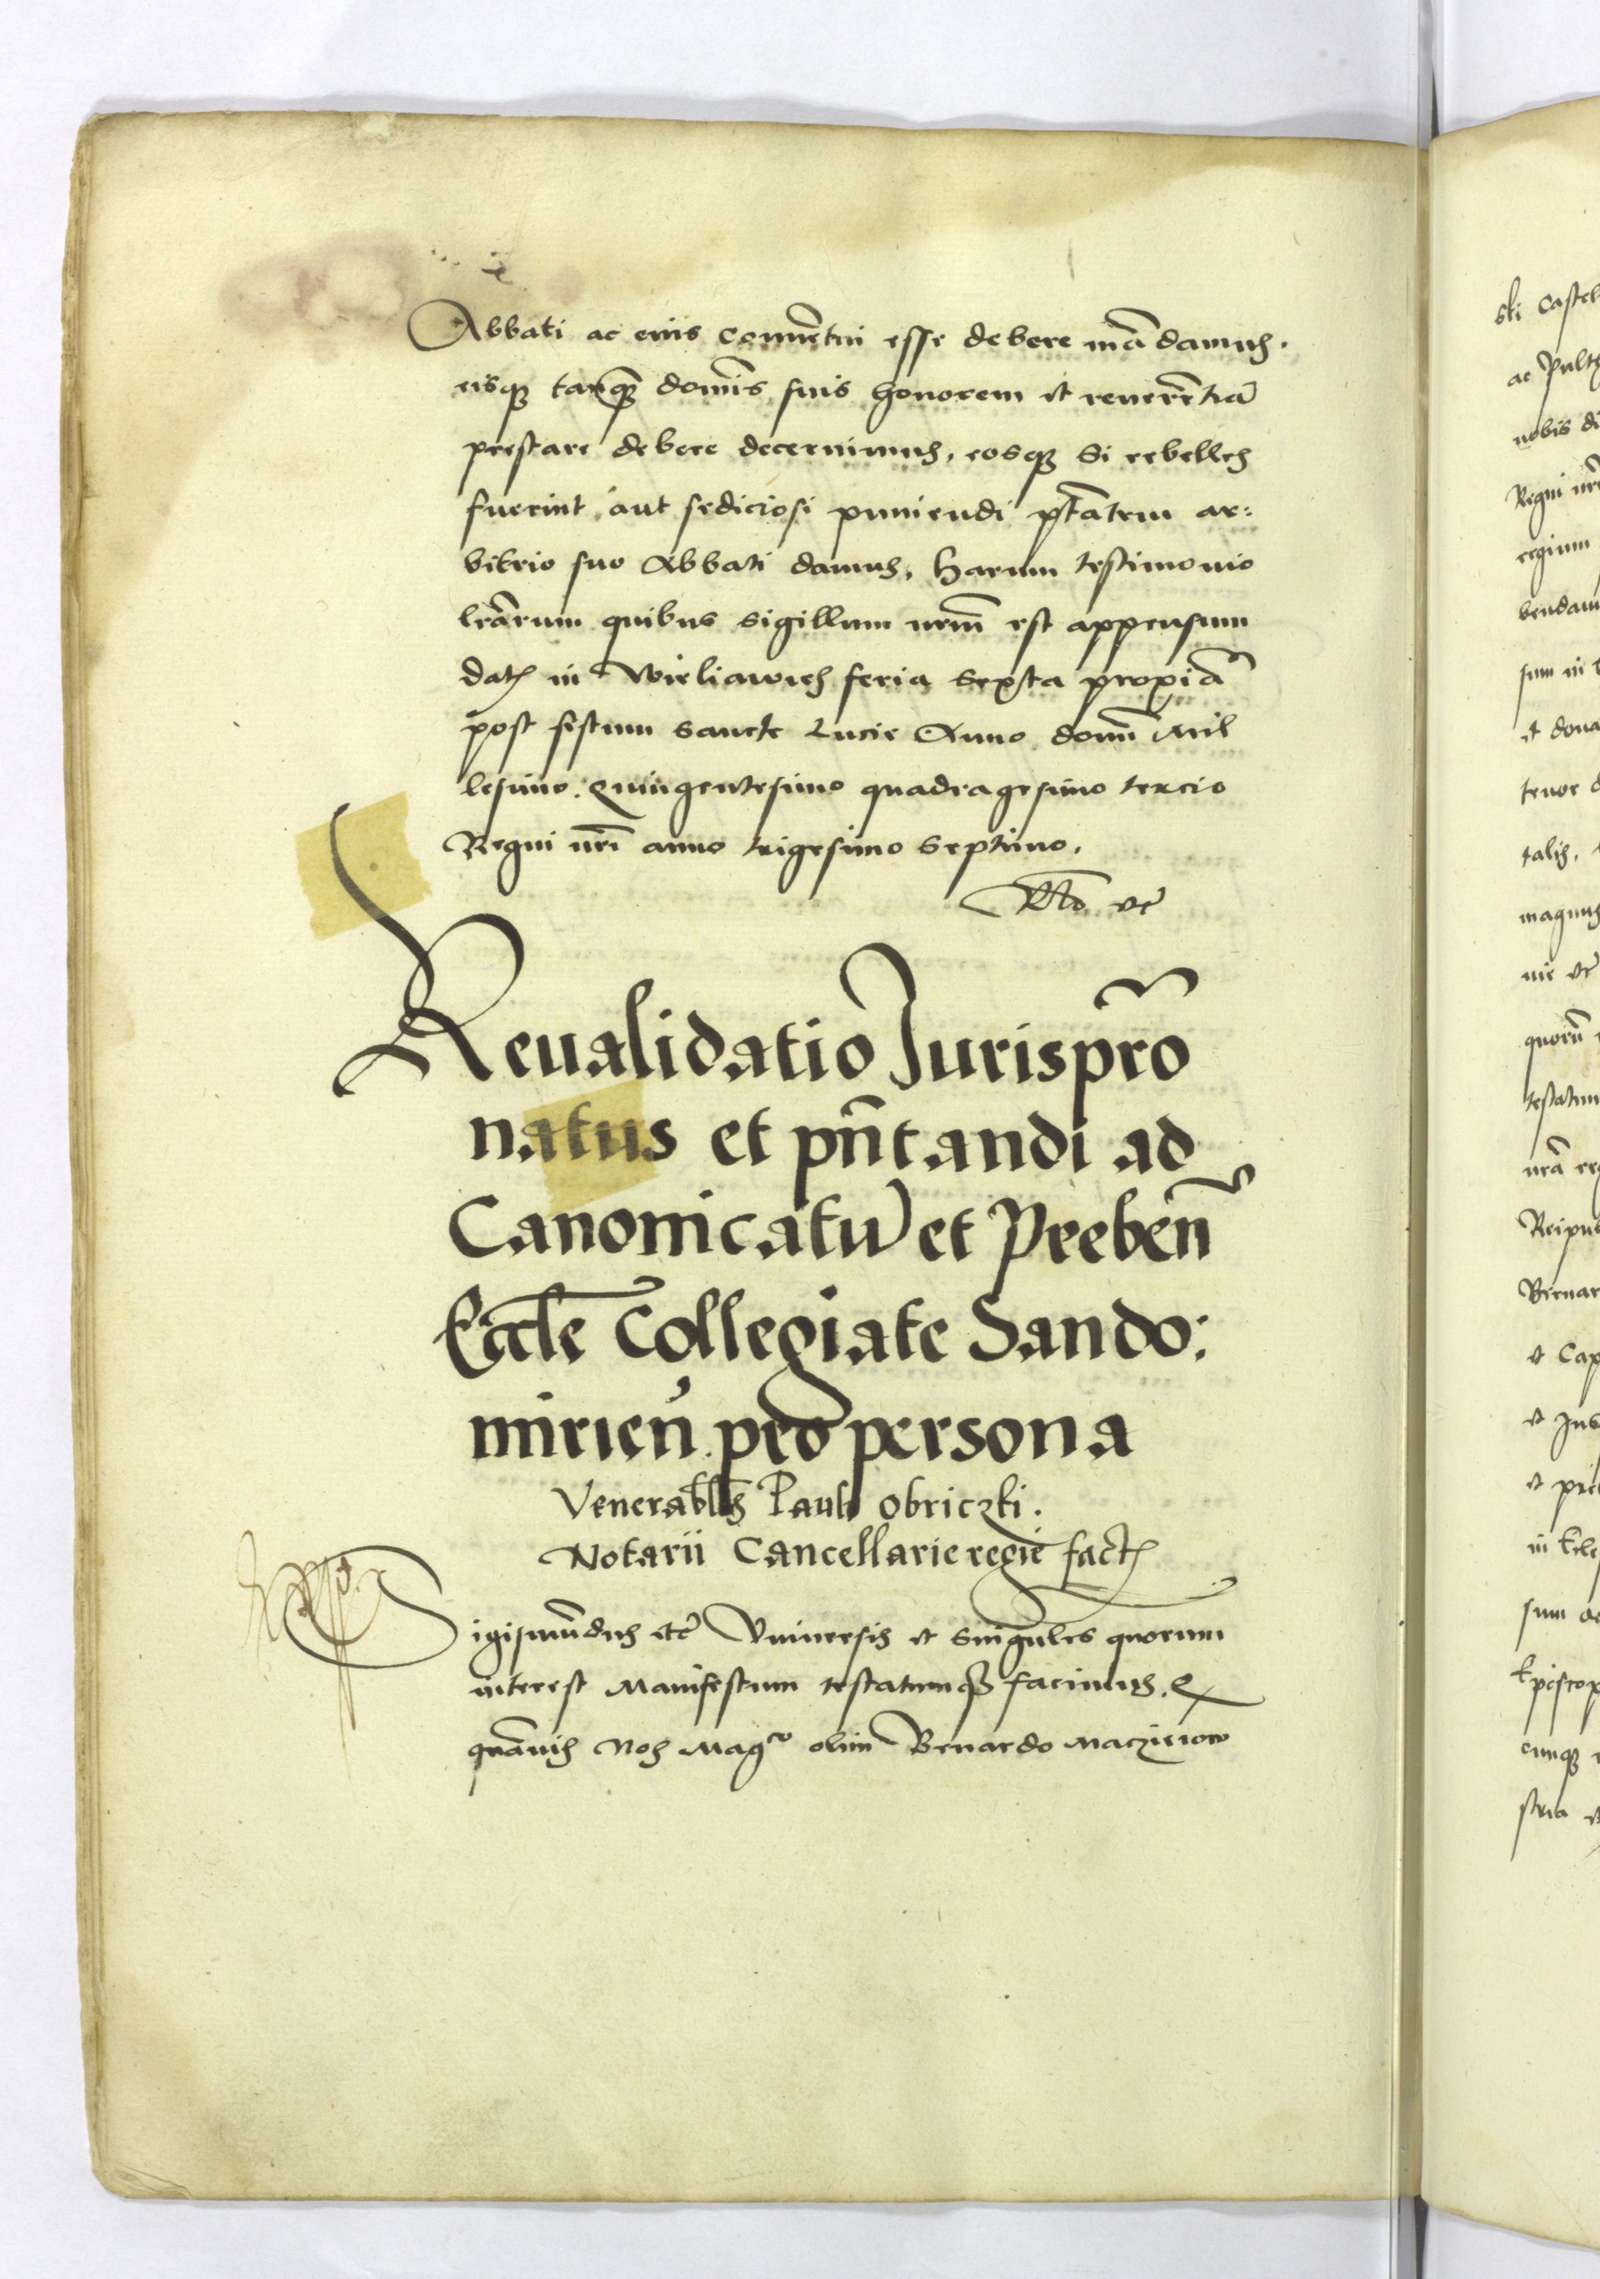 Abbati ac eius conuētui esse debere mādamus.
eisq tanq̄ domīs suis honorem et reuerētiā
prestare debere decernimus, eosq si rebelles
fuerint aut sediciosi puniendi ptātem ar:
bitrio suo Abbati damus, Harum testimonio
lrārum quibus sigillum nrm̄ est appensum
dat in feria sexta proxiā
post festum sancte Lucie Anno domī Mil
lesimo quingentesimo quadragesimo tercio
Regni nrī anno trigesimo septimo.
Reualidatio Jurisprō
natus et pn̄tandi ad
Canonicatū et Preben̄
Eccl̄e Collegiate Sando:
mirien̄ pro persona
Venerabl̄is Pauli Obriczki.
Notarii Cancellarie regie fact
Sigismūdus etc̄ Vniuersis et singulis quorum
interest Manifestum testatumq facimus. Q
quāuis Nos Magco olim Bernardo Macieiow
sti Castel
ac Pult
nobis di
Regni nr̄
regium
bendam
sum in
et dona
tenor d
talis,
magnus
nie etc̄
quorū
testatum
nrā reg
Reipub
Bernar
et Cap
et Jus
et pre
in Ecle
sum ac
Episcop
cunq
stria